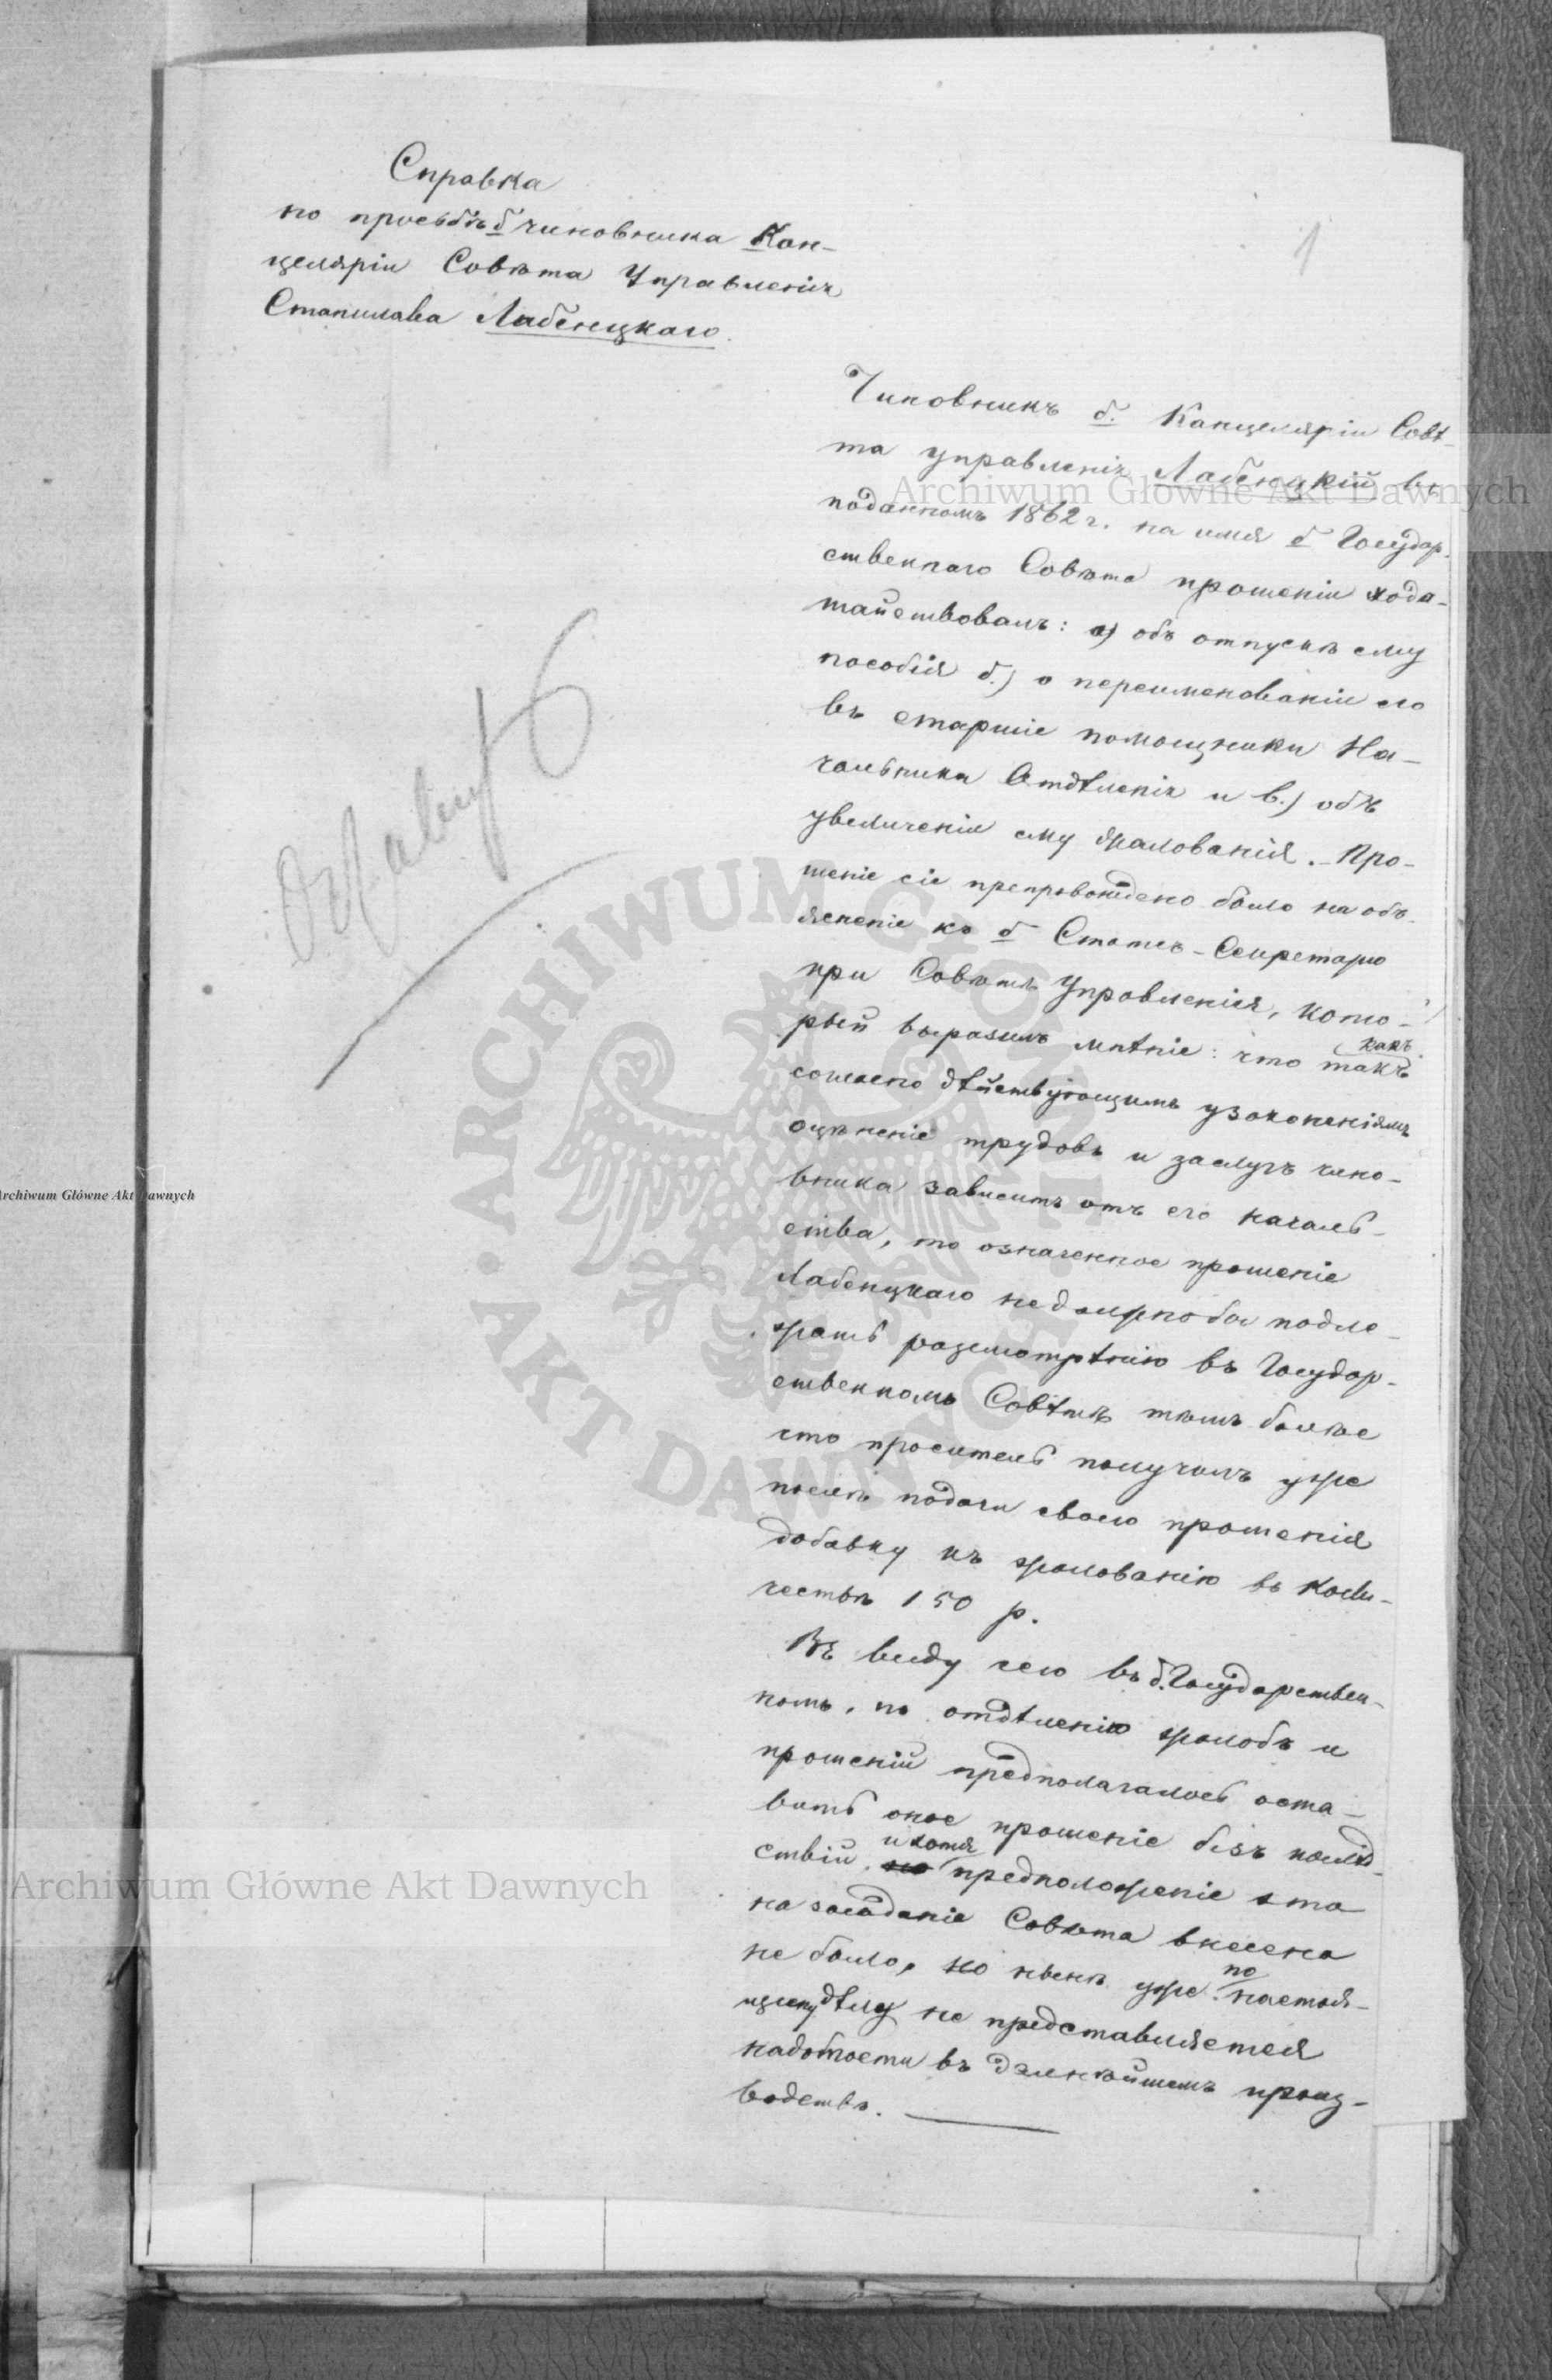 Справка
по просьбѣ б чиновника Кан-
целяріи Совѣта Управленія
Станислава Лабенцкаго.
1
Чиновникъ б. Канцеляріи Совѣ-
та управленія Лабенцкій въ
поданномъ 1862 г. на имя б Государ-
ственнаго Совѣта прошеніи хода-
тайствовалъ: а) объ отпускѣ ему
пособія б.) о переименованіи его
въ старшіе помощники На-
чальника Отдѣленія и в.) объ
увеличеніи ему жалованія. – Про-
шеніе сіе препровождено было на объ-
ясненіе къ б Статсъ-Секретарю
при Совѣтѣ Управленія, кото-
рый выразилъ мнѣніе: что такъ какъ
согласно дѣйствующимъ узаконеніямъ
оцѣненіе трудовъ и заслугъ чино-
вника зависитъ отъ его началь-
ства, то означенное прошеніе
Лабенцкаго не должно бы подле-
жать разсмотрѣнію въ Государ-
ственномъ Совѣтѣ тѣмъ болѣе
что проситель получилъ уже
послѣ подачи своего прошенія
добавку къ жалованію въ коли-
чествѣ 150 р.
Въ виду сего въ б. Государствен-
номъ, по отдѣленію жалобъ и
прошеній предполагалось оста-
вить оное прошеніе безъ послѣд-
ствій, и хотя предположеніе это
на засѣданіе Совѣта внесено
не было, но нынѣ уже по настоя-
щему дѣлу не представляется
надобности въ дальнѣйшемъ произ-
водствѣ.